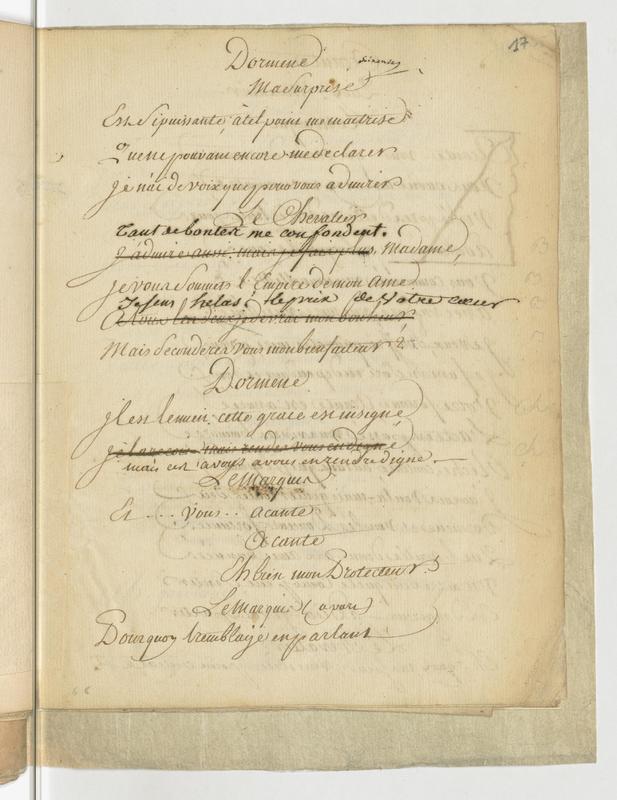 17
Dormene
Ma Surprise
Est Si puissante, à tel point me maitrise
Que ne pouvant encore me déclarer
je n'ai de voix que pour vous admirer
Le Chevalier
tant de bontés me confondent.
j'admire aussi, mais je fais plus, Madame,
je vous Soumets l'Empire de mon âme
je sens, helas! le prix de Votre cœur
A tous les deux je devrai mon bonheur,
Mais Seconderez vous mon bienfaiteur?
Dormene
il est le mien; cette grace est insigne
mais rendez vous en digne
mais c'est à vous à vous en rendre digne.
Le Marquis
Et ... vous .. acante
Acante
Eh bien mon Protecteur!
Le Marquis (a part)
Pourquoy tremblaije en parlant